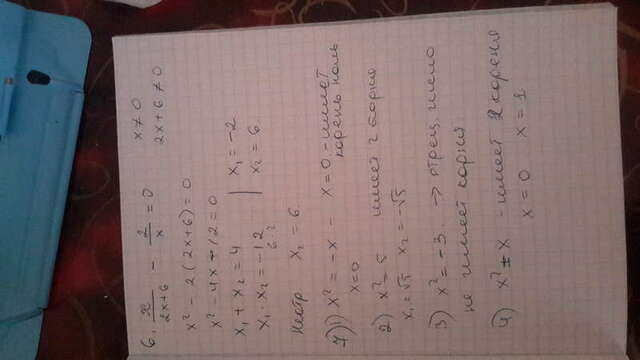 6. x/(2x+6) - 2/x = 0 x ≠ 0
2x+6 ≠ 0
x² - 2(2x+6) = 0
x² - 4x - 12 = 0
x₁ + x₂ = 4 | x₁ = -2
x₁ · x₂ = -12 | x₂ = 6
x₂ = 6
7) 1) x² = -x - x = 0 - имеет
x = 0 корень ноль
2) x² = 5 имеет 2 корня
x₁ = √5 x₂ = -√5
3) x² = -3. → отриц. число
не имеет корня
4) x² = x - имеет 2 корня
x = 0 x = 1